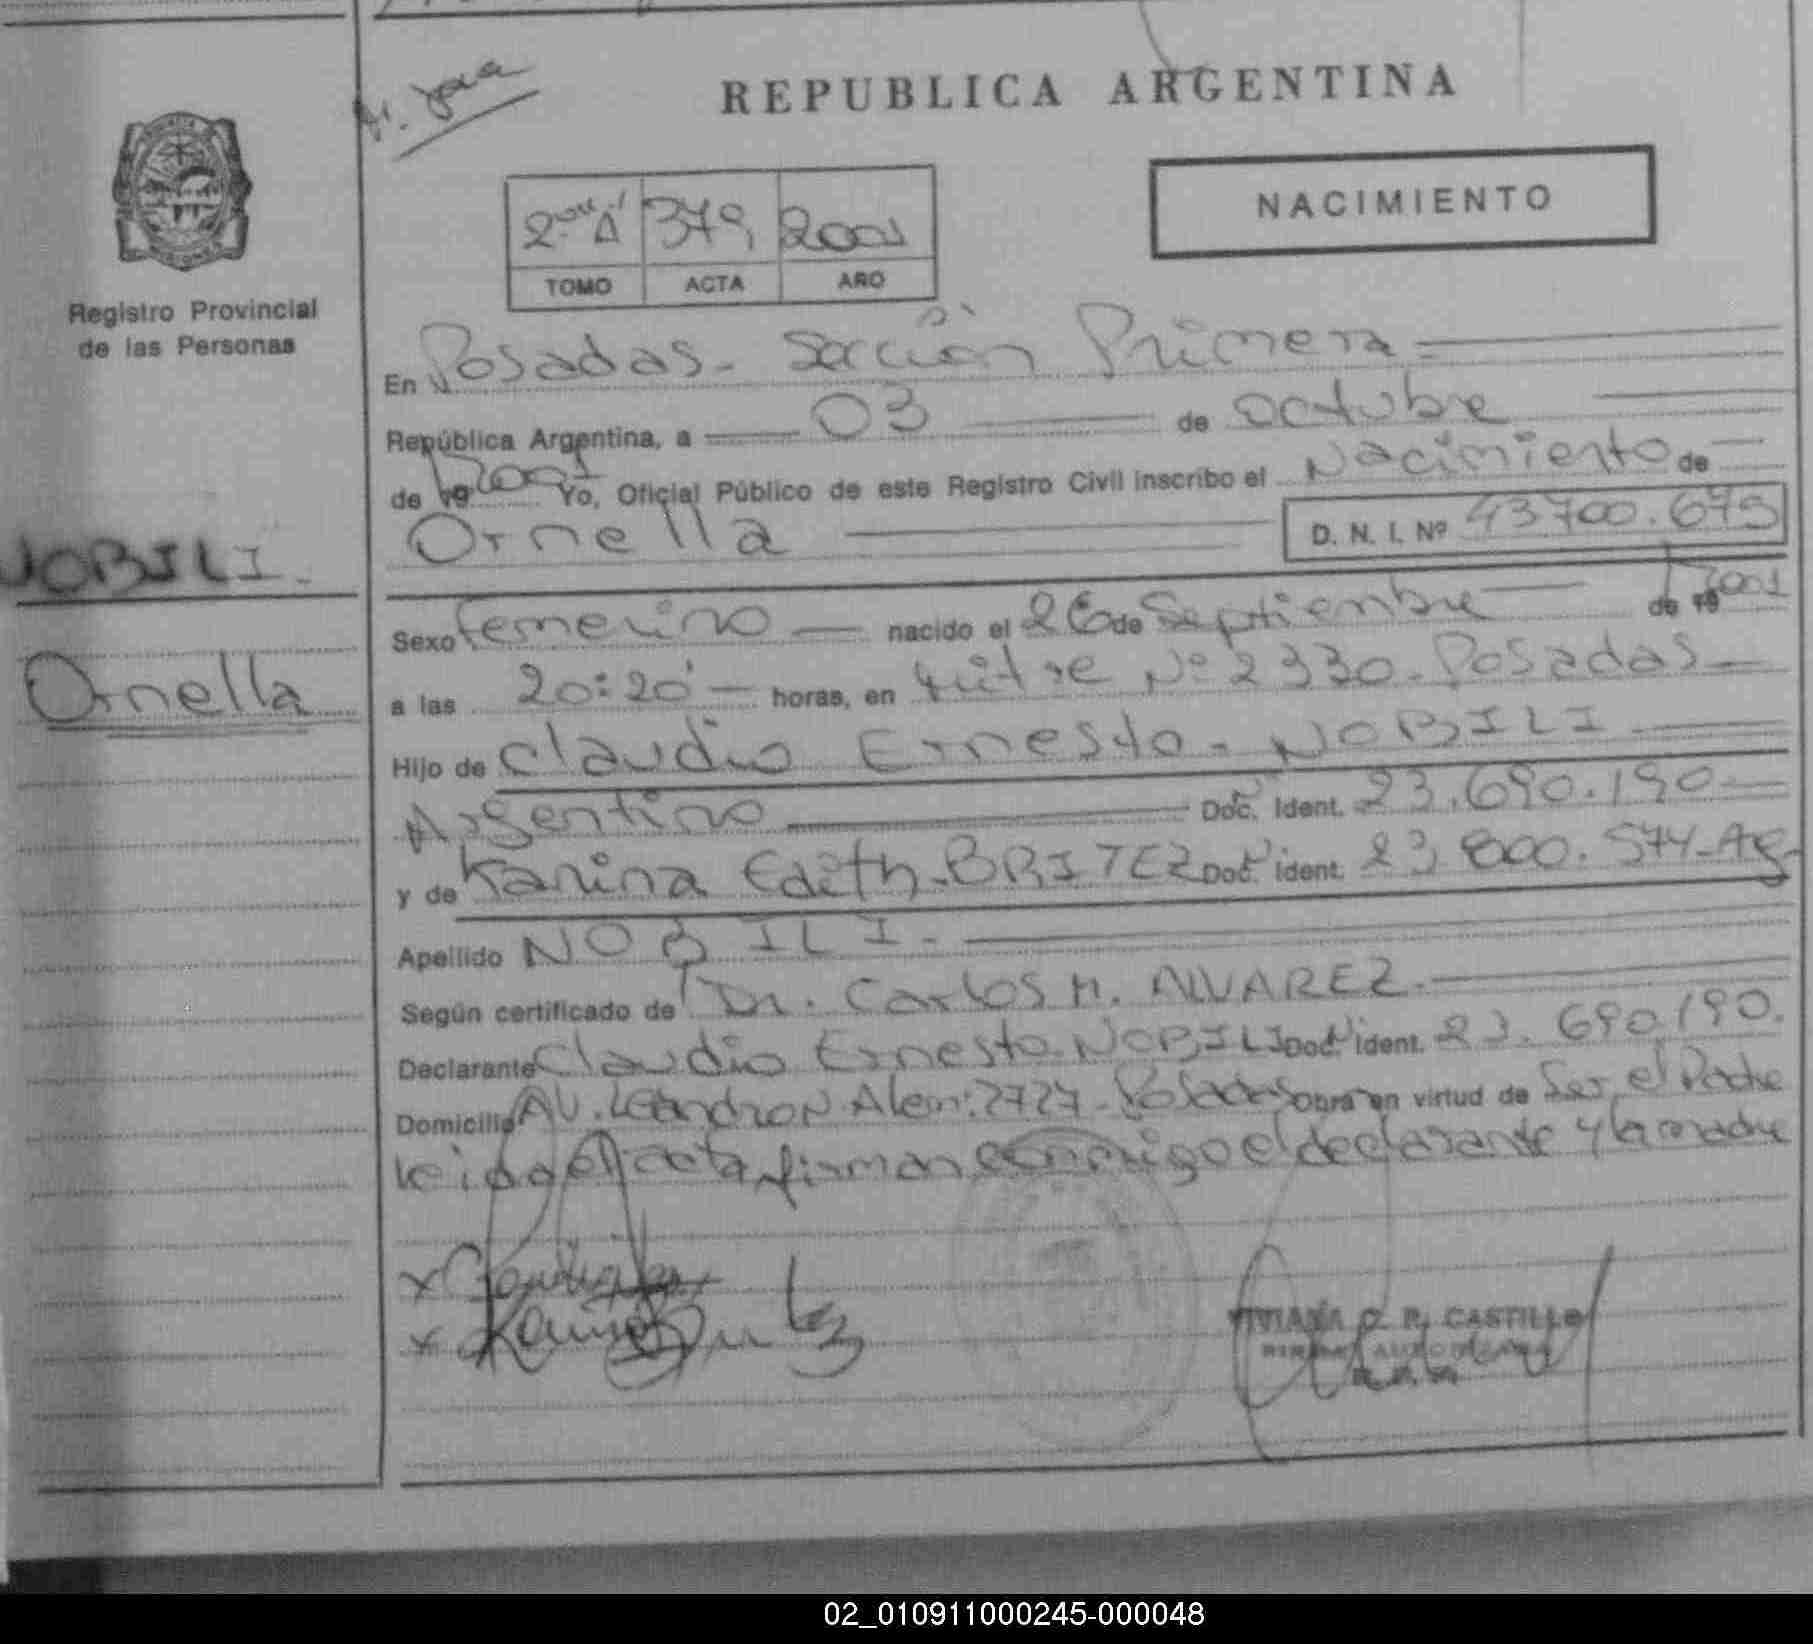 REPUBLICA ARGENTINA
NACIMIENTO
2 A 379 2001
TOMO ACTA AÑO
Registro Provincial
de las Personas
En Posadas - Sección Primera
República Argentina, a 03 de octubre
de 19 2001 Yo, Oficial Público de este Registro Civil inscribo el Nacimiento de
Ornella D. N. I. Nº 43700.675
NOBILI.
Ornella
Sexo femenino nacido el 26 de Septiembre de 19 2001
a las 20:20 horas, en Mitre Nº 2330 - Posadas
Hijo de Claudio Ernesto - NOBILI
Argentino Doc. Ident. 23.690.190
y de Karina Edith - BRITEZ Doc. Ident. 23 800.574 - Ag.
Apellido NOBILI -
Según certificado de Dr. Carlos M. ALVAREZ.
Declarante Claudio Ernesto NOBILI Doc. Ident. 23.690.190.
Domicilio AV. Leandro N. Alem: 2727 - Posadas Obra en virtud de Ser el Padre
leida el acta firman conmigo el declarante y la madre
VIVIANA C. R. CASTILLO
FIRMA AUTORIZADA
02_010911000245-000048